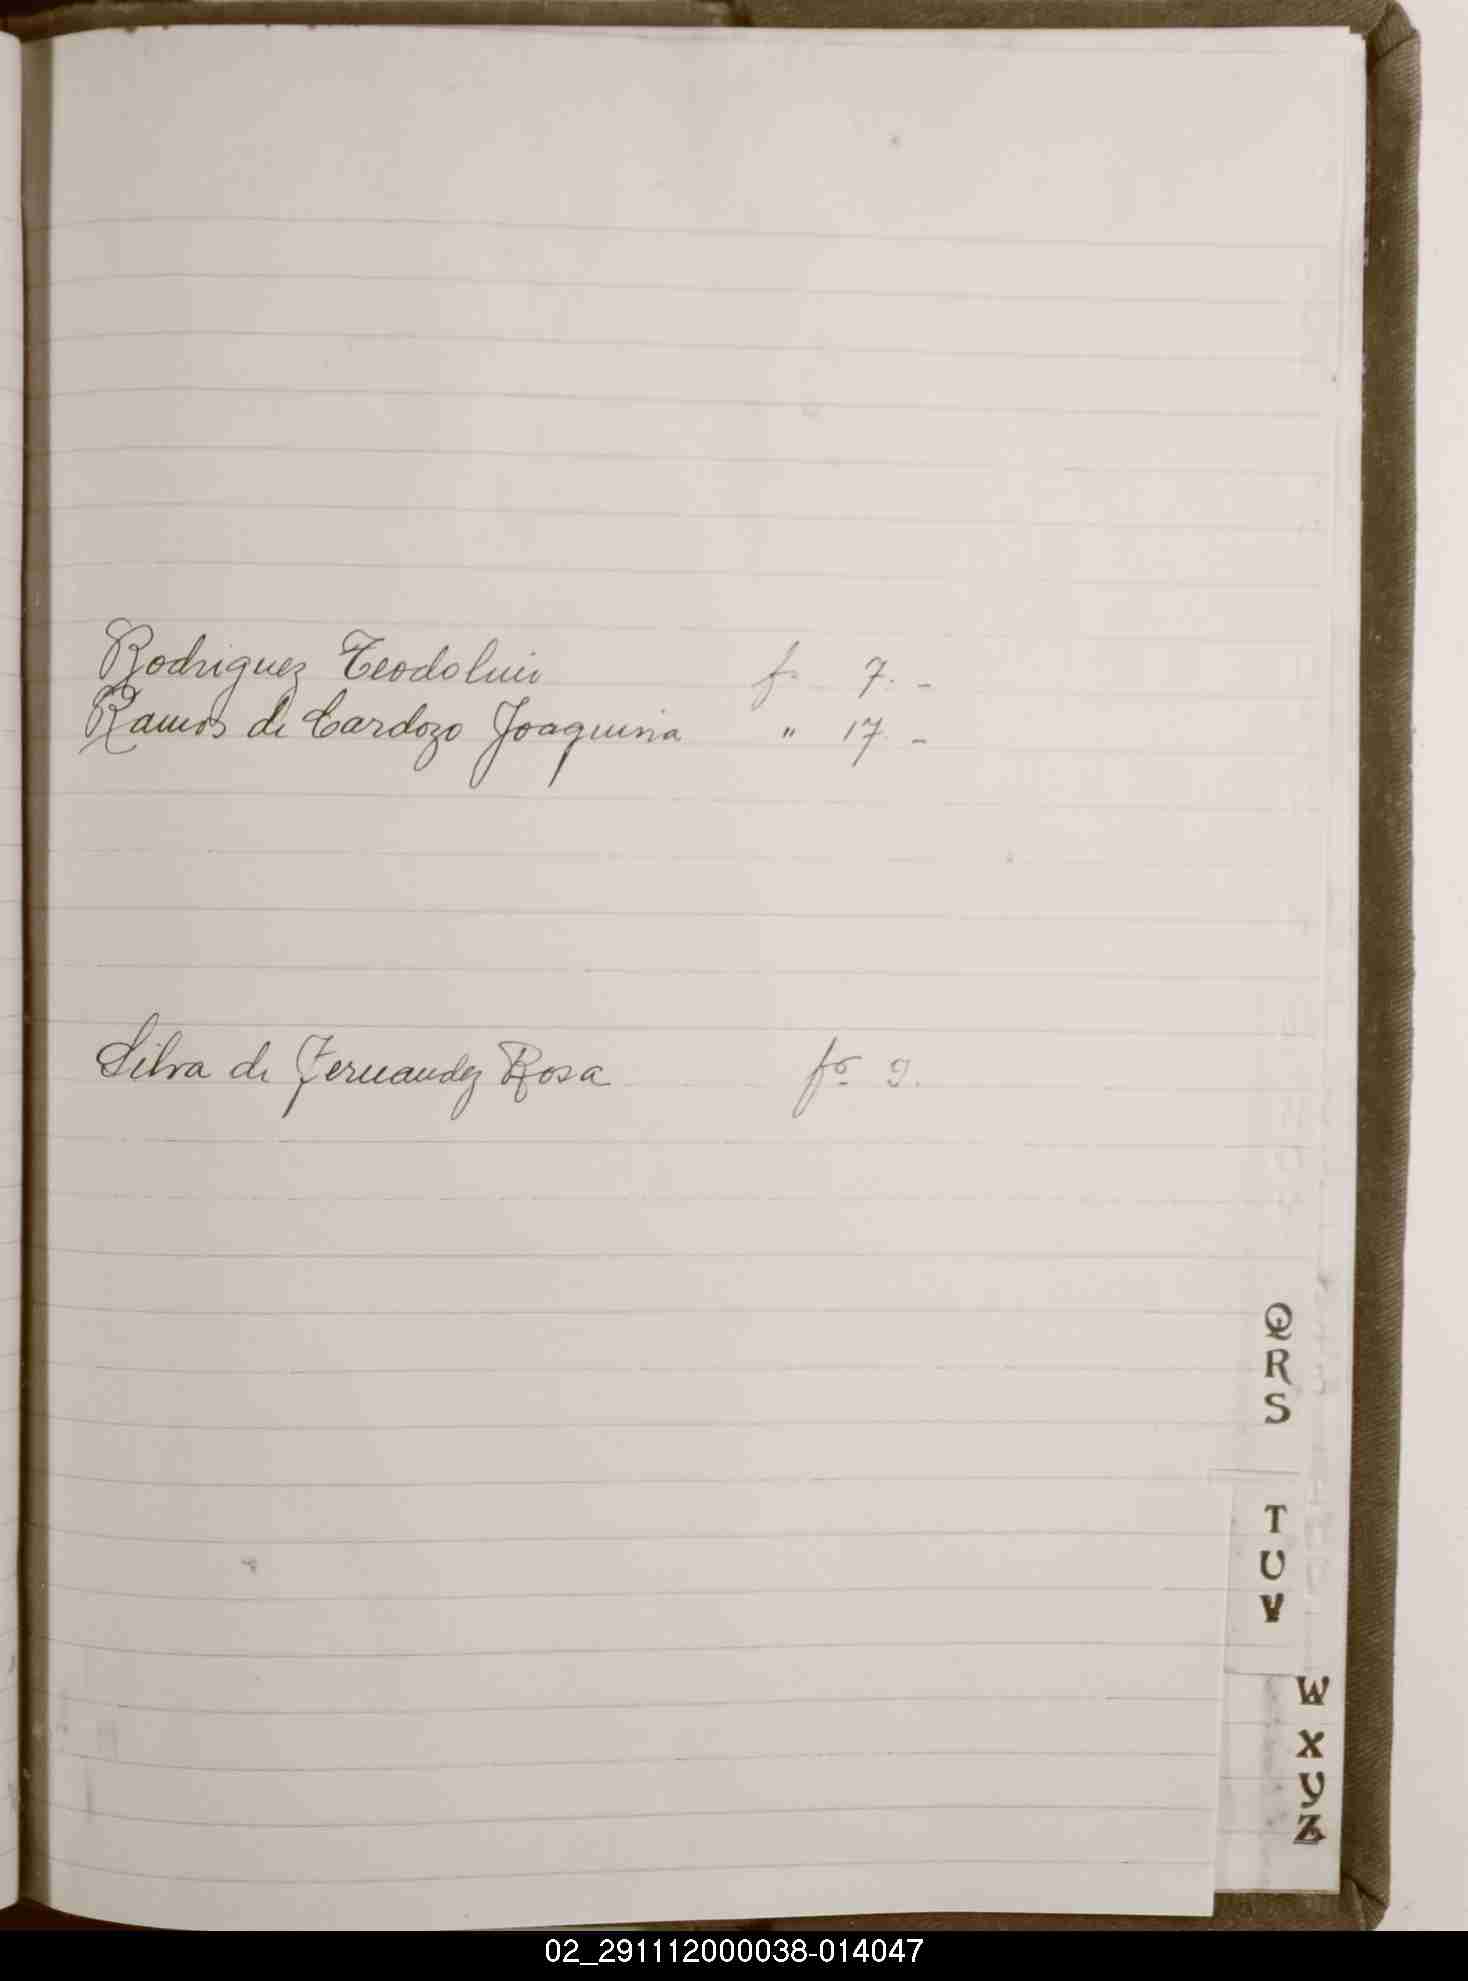 Rodriguez Teodolin f. 7. -
Ramos de Cardozo Joaquina " 17. -
Silva de Fernandez Rosa fo 9.
Q
R
S
T
U
V
W
X
Y
Z
02_291112000038-014047